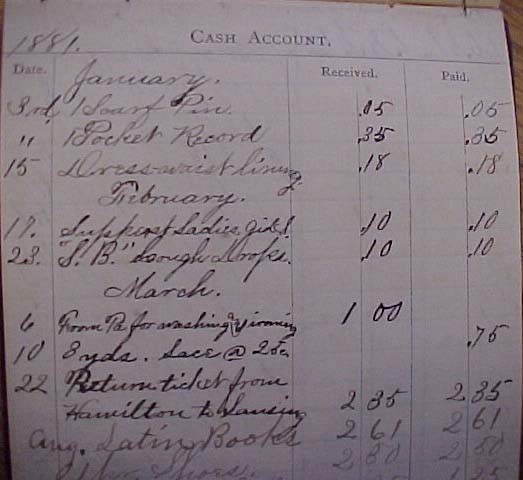 1881.
CASH ACCOUNT.
Date. Received. Paid.
January.
3rd 1 Scarf Pin. .05 .05
" 1 Pocket Record .35 .35
15 Dress waist lining .18 .18
February.
17. Support Ladies .10 .10
23. "S. B." Cough Drops. .10 .10
March.
6 From Pa for washing & ironing 1 00
10 3 yds. Lace @ 25c .75
22 Return ticket from
Hamilton to Lansing 2 35 2 35
Aug. Latin Books 2 61 2 61
1 pr. Shoes. 2 50 2 50
1 25